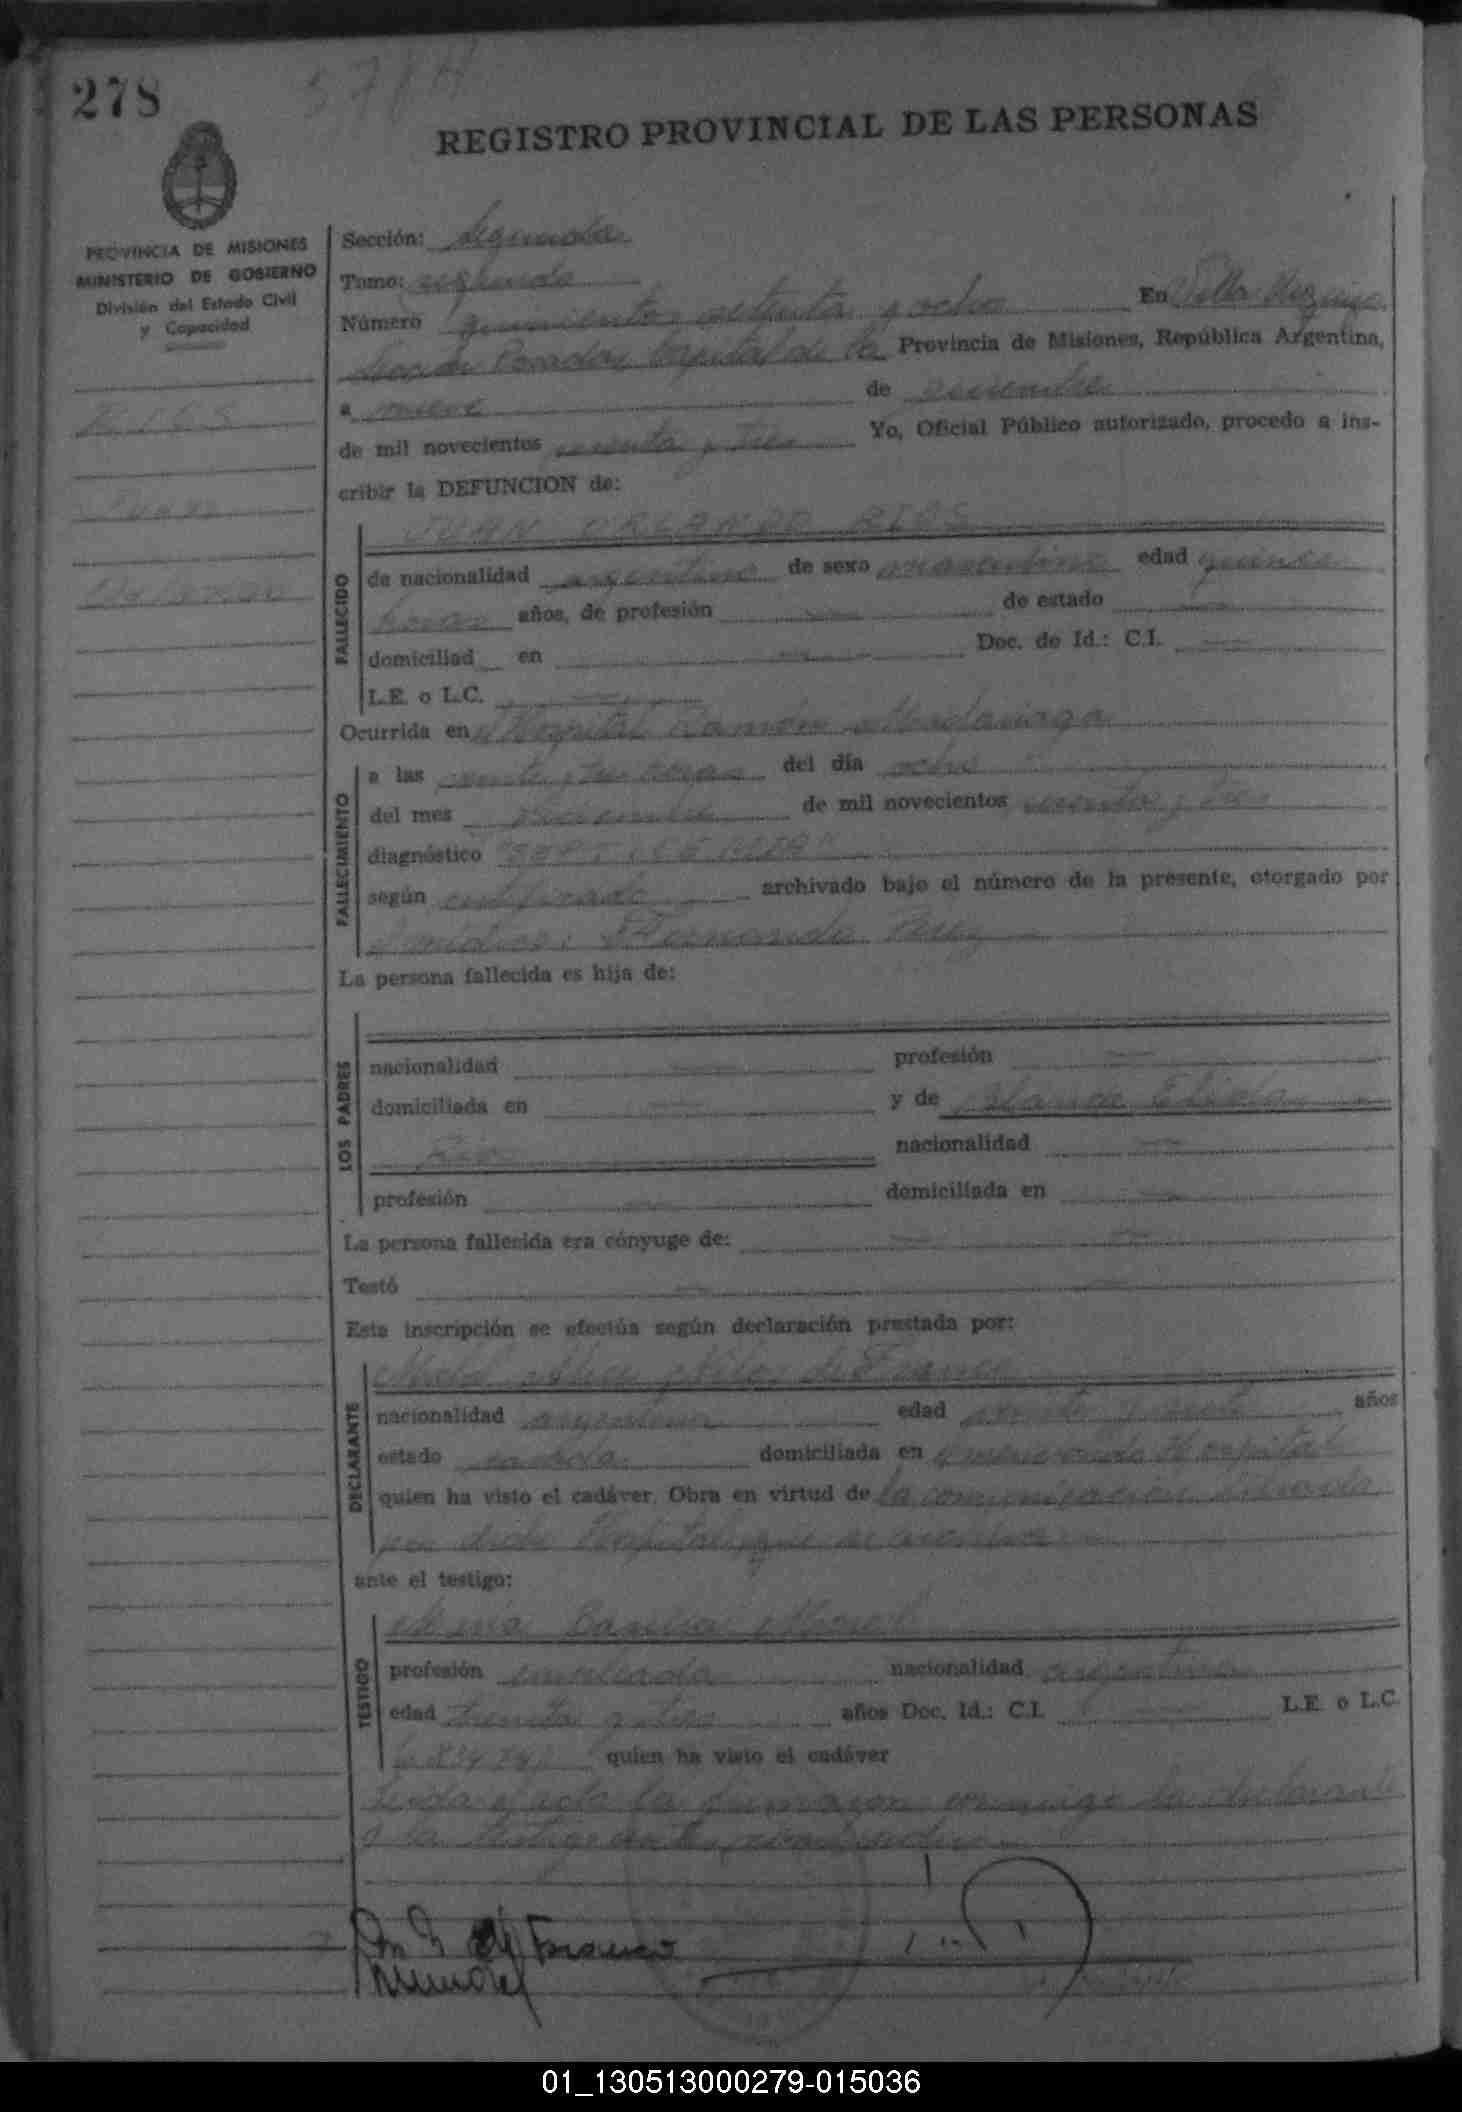 278
578 H
REGISTRO PROVINCIAL DE LAS PERSONAS
PROVINCIA DE MISIONES
MINISTERIO DE GOBIERNO
División del Estado Civil
y Capacidad
RIOS
Juan
Orlando
Sección: segunda
Tomo: segundo
Número quinientos setenta y ocho En Villa Urquiza
Sección Posadas Capital de la Provincia de Misiones, República Argentina,
a nueve de diciembre
de mil novecientos sesenta y tres Yo, Oficial Público autorizado, procedo a ins-
cribir la DEFUNCION de:
JUAN ORLANDO RIOS
FALLECIDO
de nacionalidad argentino de sexo masculino edad quince
horas años, de profesión de estado
domiciliad en Doc. de Id.: C.I.
L.E. o L.C.
Ocurrida en el Hospital Ramón Madariaga
FALLECIMIENTO
a las veinte y tres horas del día ocho
del mes diciembre de mil novecientos sesenta y tres
diagnóstico "SEPTICEMIA"
según certificado archivado bajo el número de la presente, otorgado por
el médico: Fernando Perez
La persona fallecida es hija de:
LOS PADRES
nacionalidad profesión
domiciliada en y de
Rios nacionalidad
profesión domiciliada en
La persona fallecida era cónyuge de:
Testó
Esta inscripción se efectúa según declaración prestada por:
DECLARANTE
de Franco
nacionalidad argentina edad años
estado casada domiciliada en el mencionado Hospital
quien ha visto el cadáver. Obra en virtud de la comunicación librada
por dicho Hospital, que se archiva
ante el testigo:
TESTIGO
María
profesión empleada nacionalidad argentina
edad treinta y tres años Doc. Id.: C.I. L.E. o L.C.
quien ha visto el cadáver
Leida el acta la firmaron conmigo la declarante
y la testigo
de Franco
01_130513000279-015036